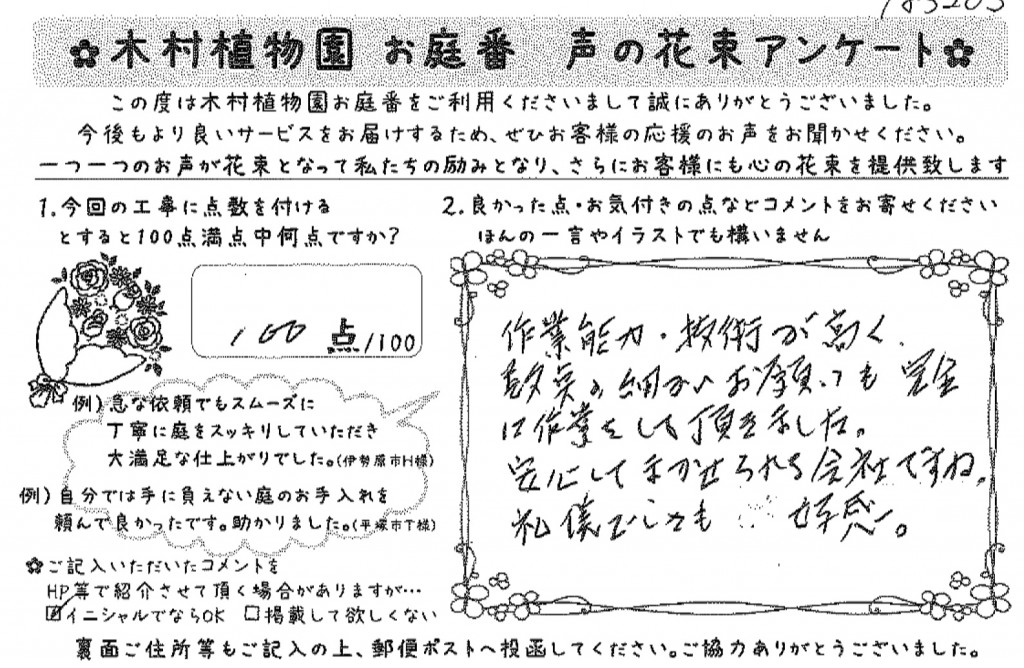 木村植物園 お庭番 声の花束アンケート
この度は木村植物園お庭番をご利用くださいまして誠にありがとうございました。
今後もより良いサービスをお届けするため、ぜひお客様の応援のお声をお聞かせください。
一つ一つのお声が花束となって私たちの励みとなり、さらにお客様にも心の花束を提供致します
1.今回の工事に点数を付ける
とすると100点満点中何点ですか?
100 点/100
例)急な依頼でもスムーズに
丁寧に庭をスッキリしていただき
大満足な仕上がりでした。(伊勢原市H様)
例)自分では手に負えない庭のお手入れを
頼んで良かったです。助かりました。(平塚市T様)
✿ご記入いただいたコメントを
HP等で紹介させて頂く場合がありますが…
☑イニシャルでならOK □掲載して欲しくない
2.良かった点・お気付きの点などコメントをお寄せください
ほんの一言やイラストでも構いません
作業能力・技術が高く、
の細かいお願いも完全
に作業をして頂きました。
安心してまかせられる会社ですね。
礼儀正しさも 好感。
裏面ご住所等もご記入の上、郵便ポストへ投函してください。ご協力ありがとうございました。